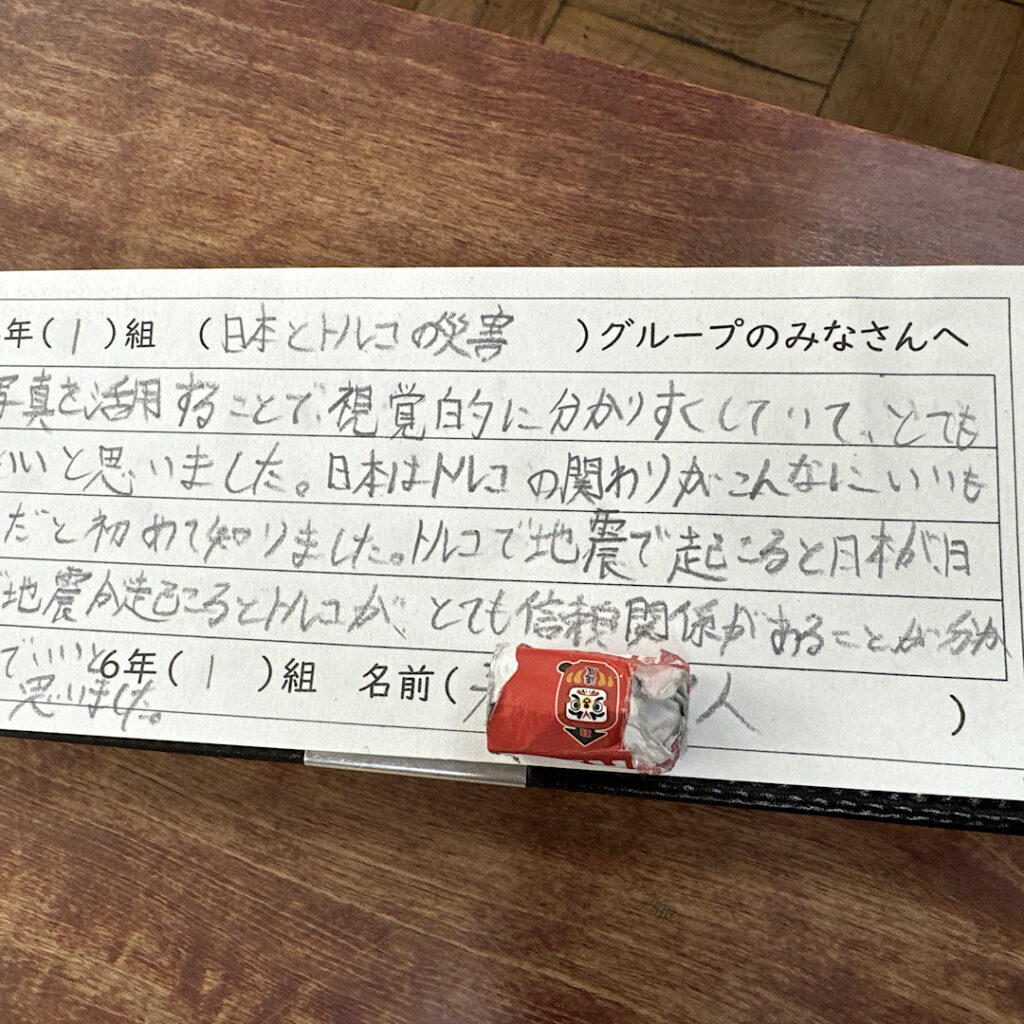 年(1)組 (日本とトルコの災害 )グループのみなさんへ
写真を活用することで、視覚的に分かりすくしていて、とても
いいと思いました。日本はトルコの関わりがこんなにいいも
だと初めて知りました。トルコで地震で起こると日本が、日
地震が起こるとトルコが、とても信頼関係があることが分か
でいいと
思いました。
6年(1)組 名前( 人 )